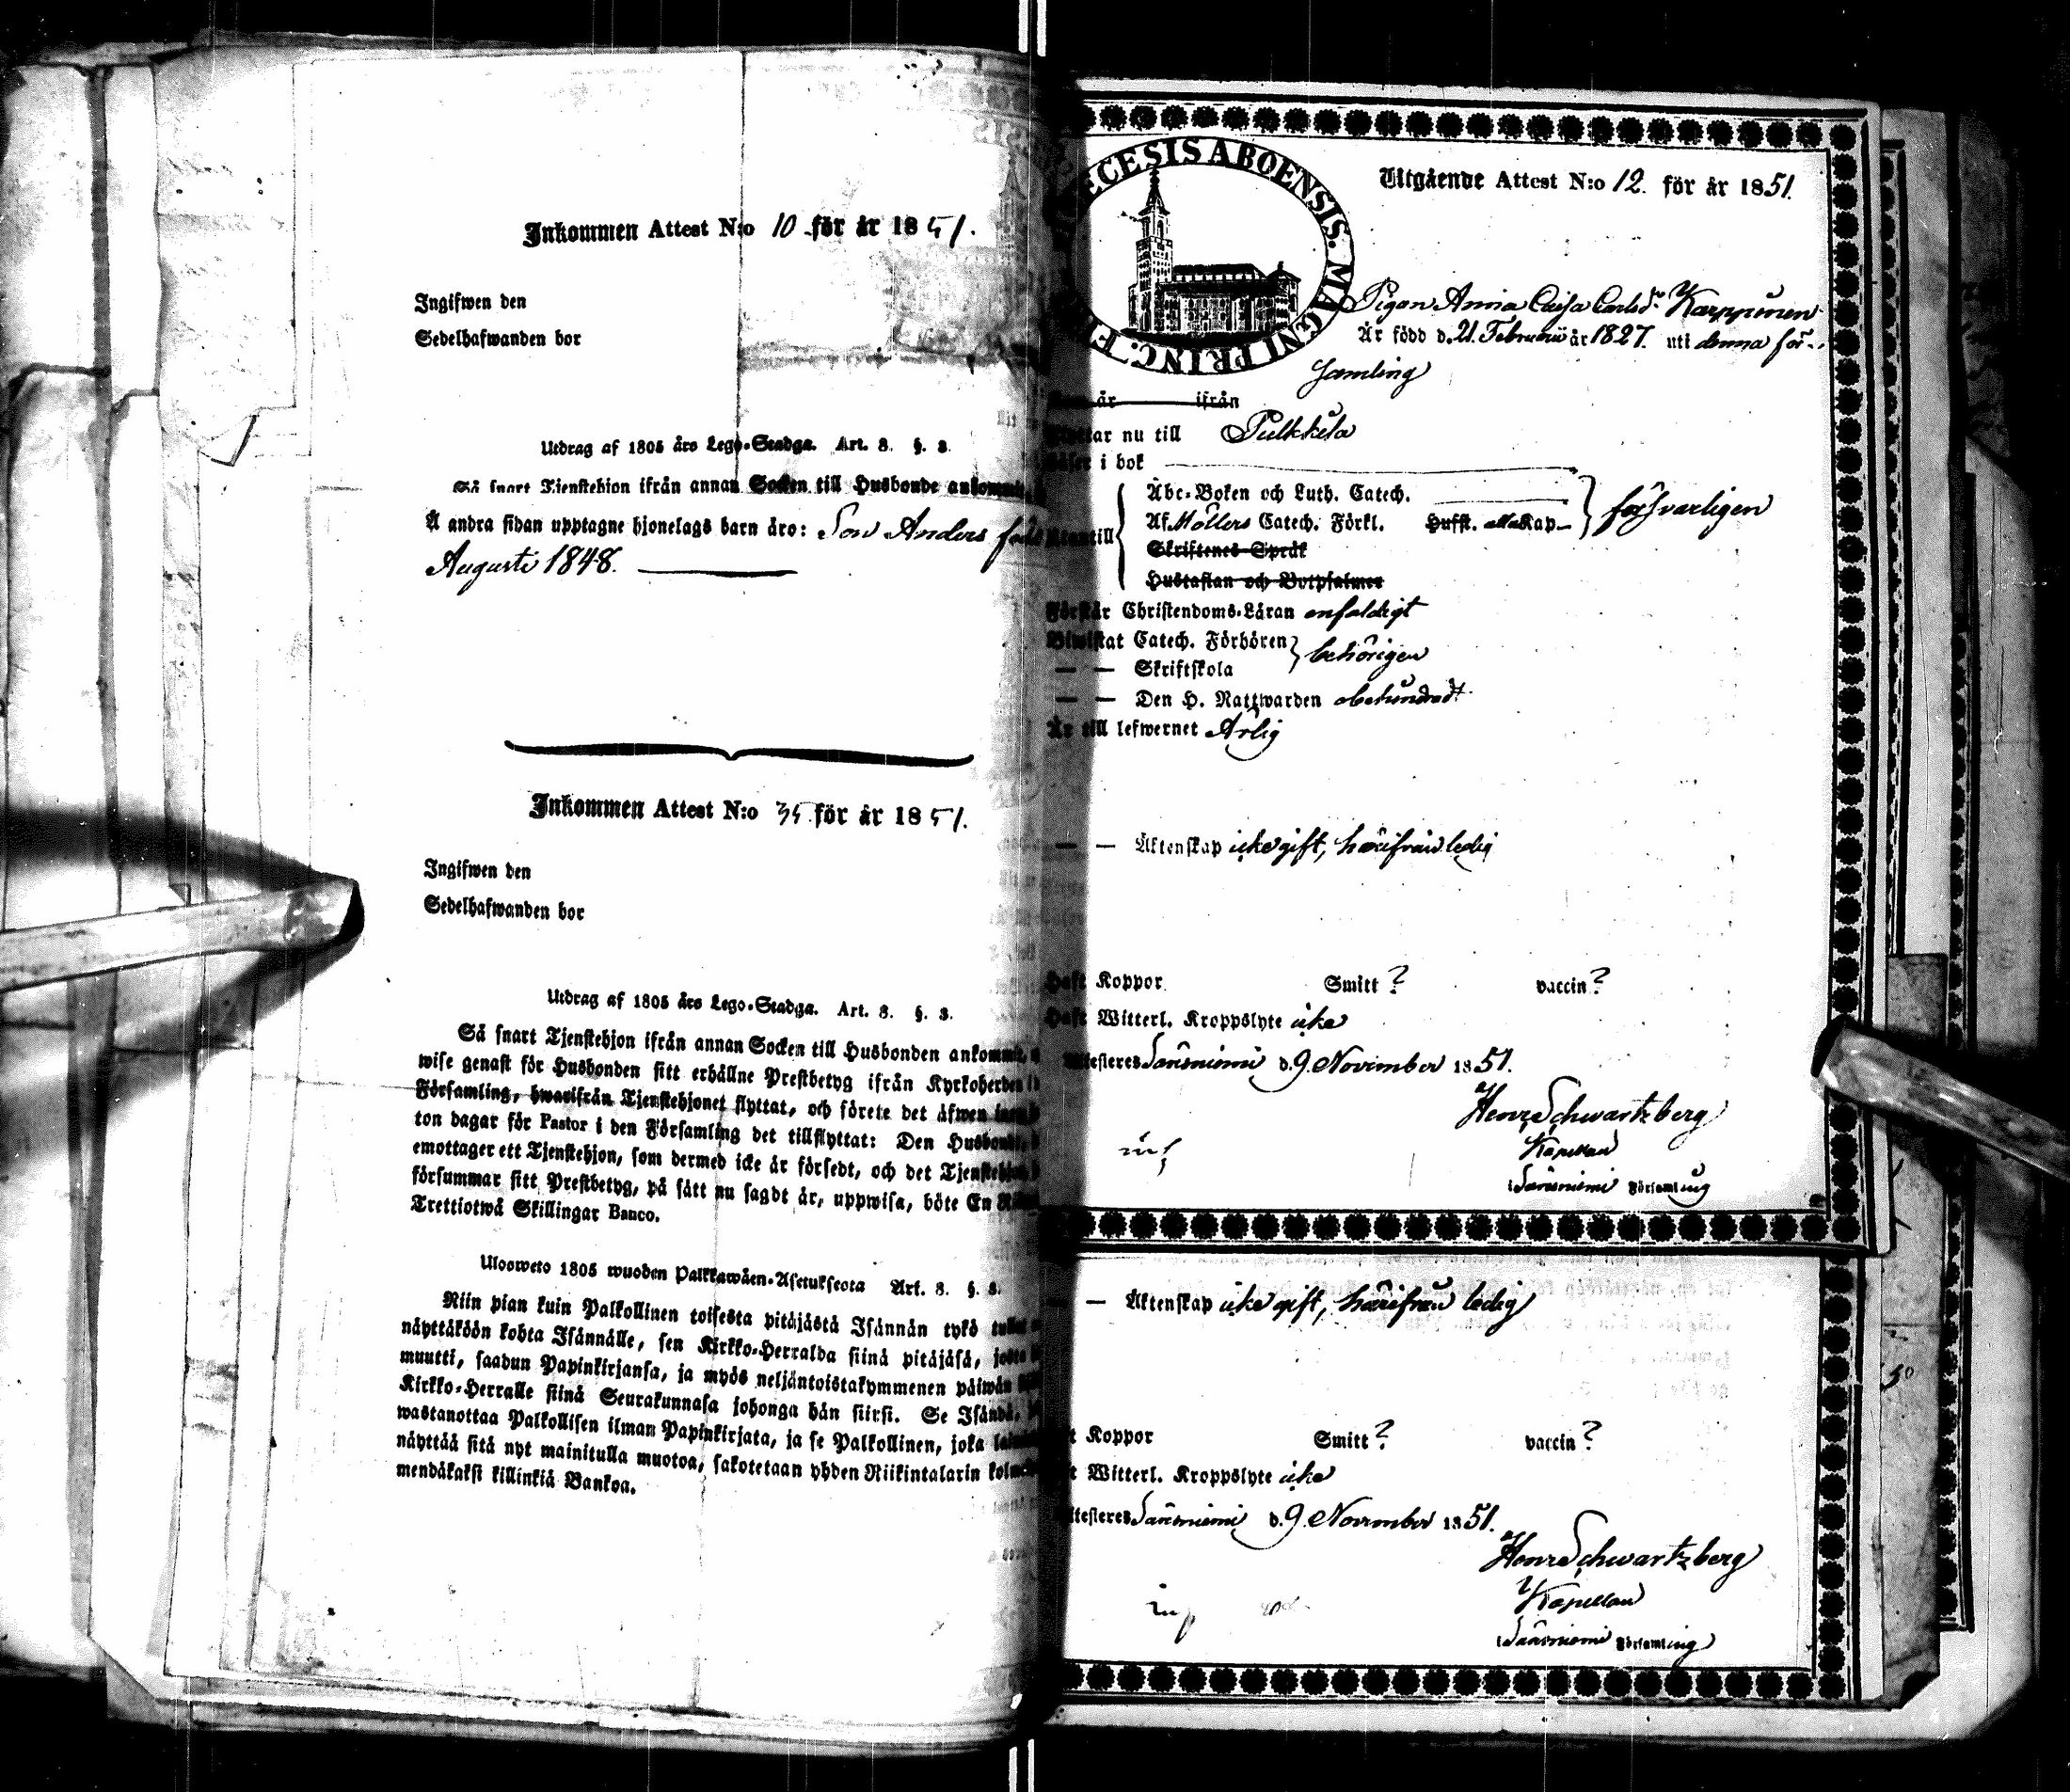 Inkommen Attest N:o 10 för år 1851.
Ingifwen den
Sedelhafwanden bor
Utdrag af 1805 års Lego-Stadga. Art. 8. §. 3.
Så snart Tjenstehjon ifrån annan Socken till Husbonde ankommit,
Å andra sidan upptagne hjonelags barn äro: Son Anders född
Augusti 1848.
Inkommen Attest N:o 35 för år 1851.
Ingifwen den
Sedelhafwanden bor
Utdrag af 1805 års Lego-Stadga. Art. 8. §. 3.
Så snart Tjenstehjon ifrån annan Socken till Husbonden ankommit,
wise genast för Husbonden sitt erhållne Prestbetyg ifrån Kyrkoherden i
Församling, hwarifrån Tjenstehjonet flyttat, och förete det äfwen
ton dagar för Pastor i den Församling det tillflyttat: Den Husbonde,
emottager ett Tjenstehjon, som dermed icke är försedt, och det Tjenstehjon,
försummar sitt Prestbetyg, på sätt nu sagdt är, uppwisa, böte En
Trettiotwå Skillingar Banco.
Ulosweto 1805 wuoden Palkkawäen-Asetuksesta Art. 8. §. 3.
Niin pian kuin Palkollinen toisesta pitäjästä Isännän tykö tullut
näyttäköön kohta Isännälle, sen Kirkko-Herralda siinä pitäjäsä, josta
muutti, saadun Papinkirjansa, ja myös neljäntoistakymmenen päiwän
Kirkko-Herralle siinä Seurakunnasa johonga hän siirsi. Se Isändä,
wastanottaa Palkollisen ilman Papinkirjata, ja se Palkollinen, joka
näyttää sitä nyt mainitulla muotoa, sakotetaan yhden Riikintalarin
mendäkaksi killinkiä Bankoa.
ECESIS ABOENSIS. MAGNI PRINC. F
Utgående Attest N:o 12. för år 1851.
Pigan Anna Caisa Carlsdr Karppinen
Är född d. 21. Februarii år 1827. uti denna för-
samling
år ifrån
Flyttar nu till Pulkkila
Läser i bok
Abc-Boken och Luth. Catech.
Utantill Af Möllers Catech. Förkl. Husst. alla Kap försvarligen
Skriftenes Språk
Hustaflan och Botpsalmer
Förstår Christendoms-Läran enfaldigt
Biwistat Catech. Förhören behörigen
— — Skriftskola
— — Den H. Nattwarden obehindradt
Är till lefwernet Ärlig
— — Äktenskap icke gift, härifrån ledig
Haft Koppor Smitt? vaccin?
Haft Witterl. Kroppslyte icke
Attesteres Säräisniemi d. 9. November 1851.
Henr Schwartzberg
Kapellan
i Säräisniemi Församling
— — Äktenskap icke gift, härifrån ledig
Koppor Smitt? vaccin?
Witterl. Kroppslyte icke
Attesteres Säräisniemi d. 9. November 1851.
Henr Schwartzberg
Kapellan
i Säräisniemi Församling